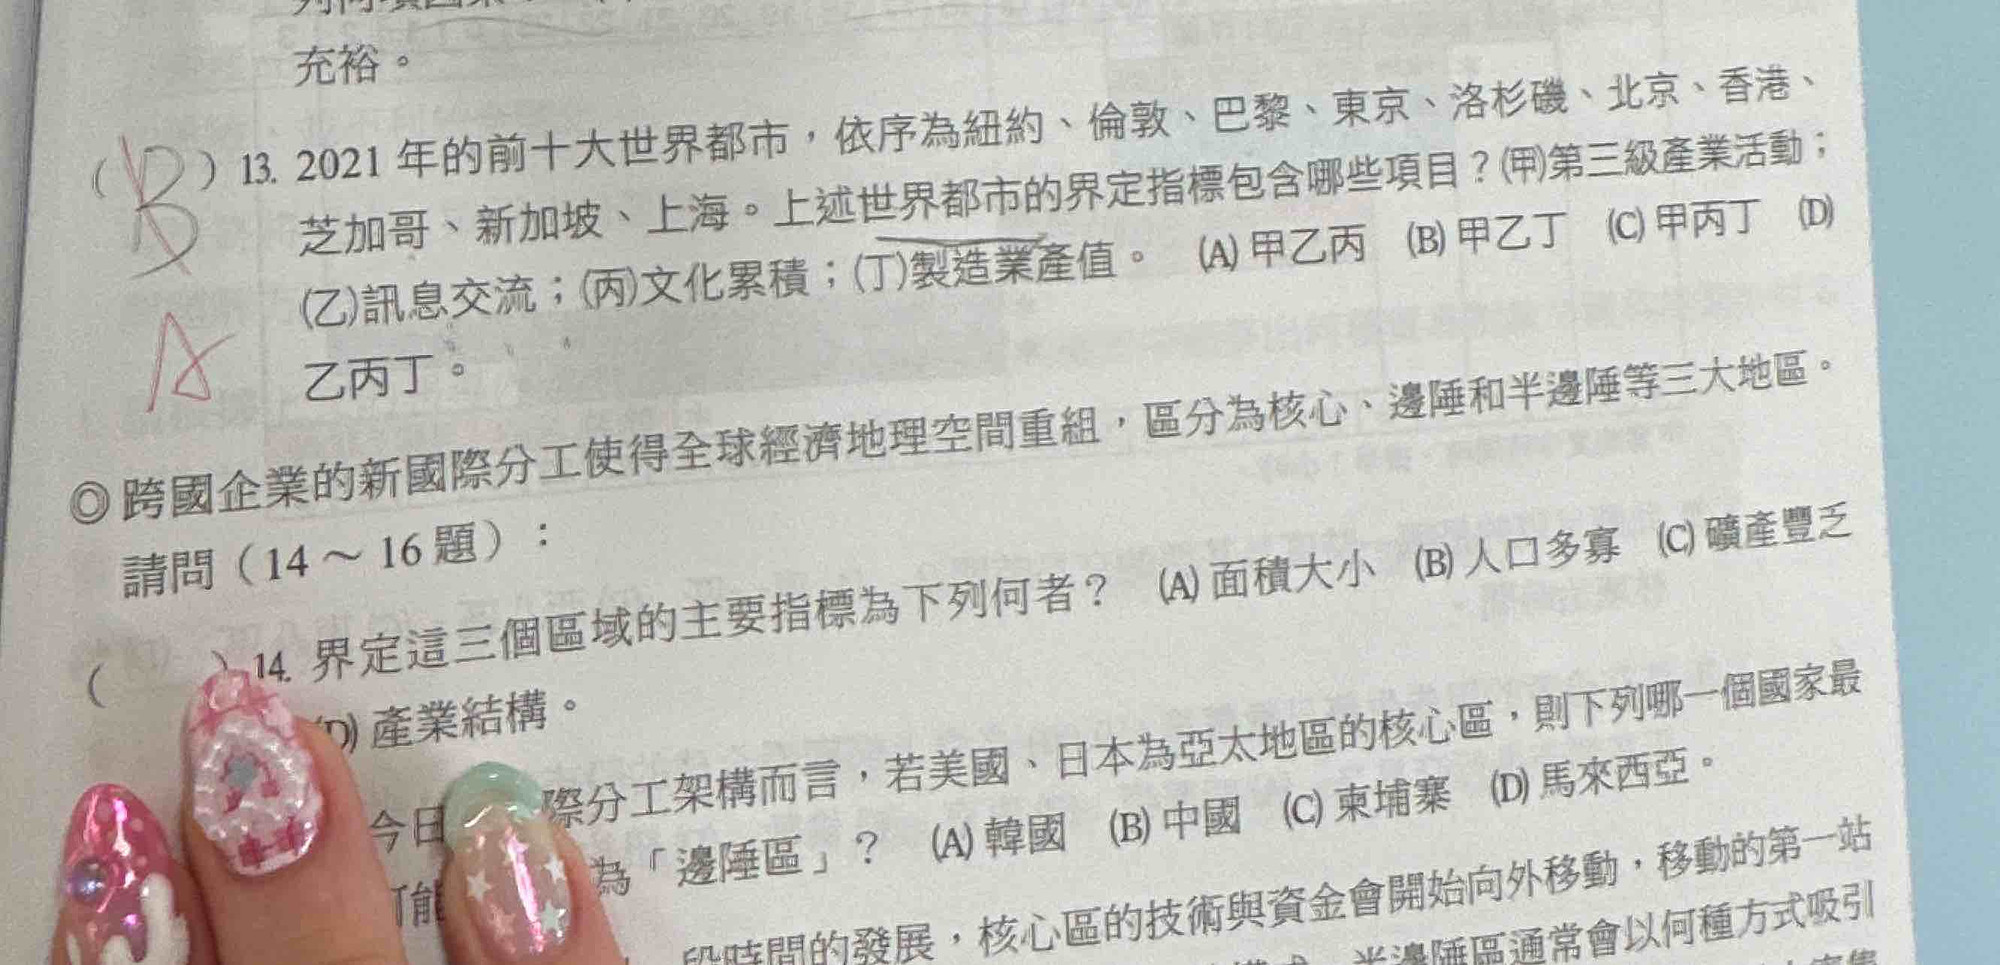 充裕。
( B ) 13. 2021 年的前十大世界都市，依序為紐約、倫敦、巴黎、東京、洛杉磯、北京、香港、
芝加哥、新加坡、上海。上述世界都市的界定指標包含哪些項目？(甲)第三級產業活動；
(乙)訊息交流；(丙)文化累積；(丁)製造業產值。 (A) 甲乙丙 (B) 甲乙丁 (C) 甲丙丁 (D)
A
乙丙丁。
◎ 跨國企業的新國際分工使得全球經濟地理空間重組，區分為核心、邊陲和半邊陲等三大地區。
請問（14 ～ 16 題）：
( ) 14. 界定這三個區域的主要指標為下列何者？ (A) 面積大小 (B) 人口多寡 (C) 礦產豐乏
(D) 產業結構。
今日 際分工架構而言，若美國、日本為亞太地區的核心區，則下列哪一個國家最
可能 為「邊陲區」？ (A) 韓國 (B) 中國 (C) 柬埔寨 (D) 馬來西亞。
段時間的發展，核心區的技術與資金會開始向外移動，移動的第一站
半邊陲區通常會以何種方式吸引